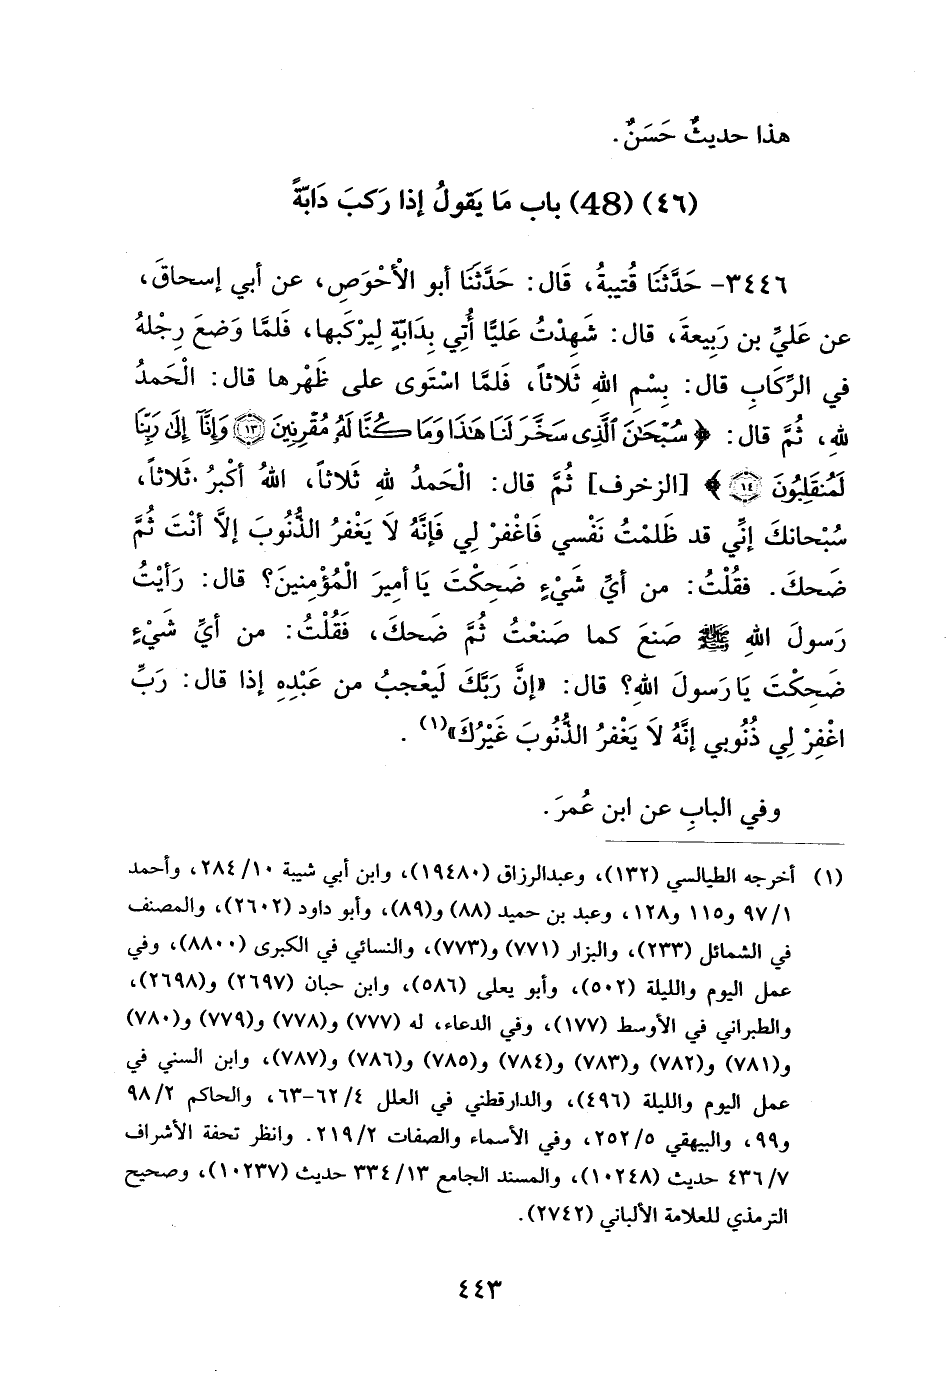 هذا حديثٌ حَسَنٌ .
(٤٦) (48) باب مَا يَقولُ إذا رَكبَ دَابّةً
٣٤٤٦- حَدَّثنَا قُتيبةُ، قَال: حَدَّثنَا أبو الْأَحْوَصِ، عن أبي إسحاقَ،
عن عليِّ بن رَبِيعةَ، قال: شَهِدْتُ عَليًّا أُتِي بِدَابّةٍ لِيرْكَبها، فَلمَّا وَضعَ رِجْلهُ
في الرِّكَابِ قال: بِسْمِ اللهِ ثَلاثاً، فَلمَّا اسْتَوى على ظَهْرِها قال: الْحَمدُ
للهِ، ثُمَّ قال: ﴿ سُبْحَٰنَ ٱلَّذِى سَخَّرَ لَنَا هَٰذَا وَمَا كُنَّا لَهُۥ مُقْرِنِينَ ١٣ وَإِنَّآ إِلَىٰ رَبِّنَا
لَمُنقَلِبُونَ ١٤ ﴾ [الزخرف] ثُمَّ قال: الْحَمدُ للهِ ثَلاثاً، اللهُ أكْبرُ ثَلاثاً،
سُبْحانكَ إنِّي قد ظَلمْتُ نَفْسي فَاغْفرْ لِي فَإنَّهُ لَا يَغْفرُ الذُّنُوبَ إلاَّ أنْتَ ثُمَّ
ضَحكَ. فقُلْتُ: من أيِّ شَيْءٍ ضَحِكْتَ يَا أمِيرَ الْمُؤْمِنينَ؟ قال: رَأيْتُ
رَسولَ اللهِ ﷺ صَنعَ كما صَنعْتُ ثُمَّ ضَحكَ، فَقُلْتُ: من أيِّ شَيْءٍ
ضَحِكْتَ يَا رَسولَ اللهِ؟ قال: «إنَّ رَبَّكَ لَيعْجبُ من عَبْدِهِ إذا قال: رَبِّ
اغْفِرْ لِي ذُنُوبي إنَّهُ لَا يَغْفرُ الذُّنُوبَ غَيْرُكَ»(١) .
وفي البابِ عن ابن عُمرَ.
(١) أخرجه الطيالسي (١٣٢)، وعبدالرزاق (١٩٤٨٠)، وابن أبي شيبة ٢٨٤/١٠، وأحمد
٩٧/١ و١١٥ و١٢٨، وعبد بن حميد (٨٨) و(٨٩)، وأبو داود (٢٦٠٢)، والمصنف
في الشمائل (٢٣٣)، والبزار (٧٧١) و(٧٧٣)، والنسائي في الكبرى (٨٨٠٠)، وفي
عمل اليوم والليلة (٥٠٢)، وأبو يعلى (٥٨٦)، وابن حبان (٢٦٩٧) و(٢٦٩٨)،
والطبراني في الأوسط (١٧٧)، وفي الدعاء، له (٧٧٧) و(٧٧٨) و(٧٧٩) و(٧٨٠)
و(٧٨١) و(٧٨٢) و(٧٨٣) و(٧٨٤) و(٧٨٥) و(٧٨٦) و(٧٨٧)، وابن السني في
عمل اليوم والليلة (٤٩٦)، والدارقطني في العلل ٤/ ٦٢-٦٣، والحاكم ٩٨/٢
و٩٩، والبيهقي ٢٥٢/٥، وفي الأسماء والصفات ٢١٩/٢. وانظر تحفة الأشراف
٤٣٦/٧ حديث (١٠٢٤٨)، والمسند الجامع ٣٣٤/١٣ حديث (١٠٢٣٧)، وصحيح
الترمذي للعلامة الألباني (٢٧٤٢).
٤٤٣